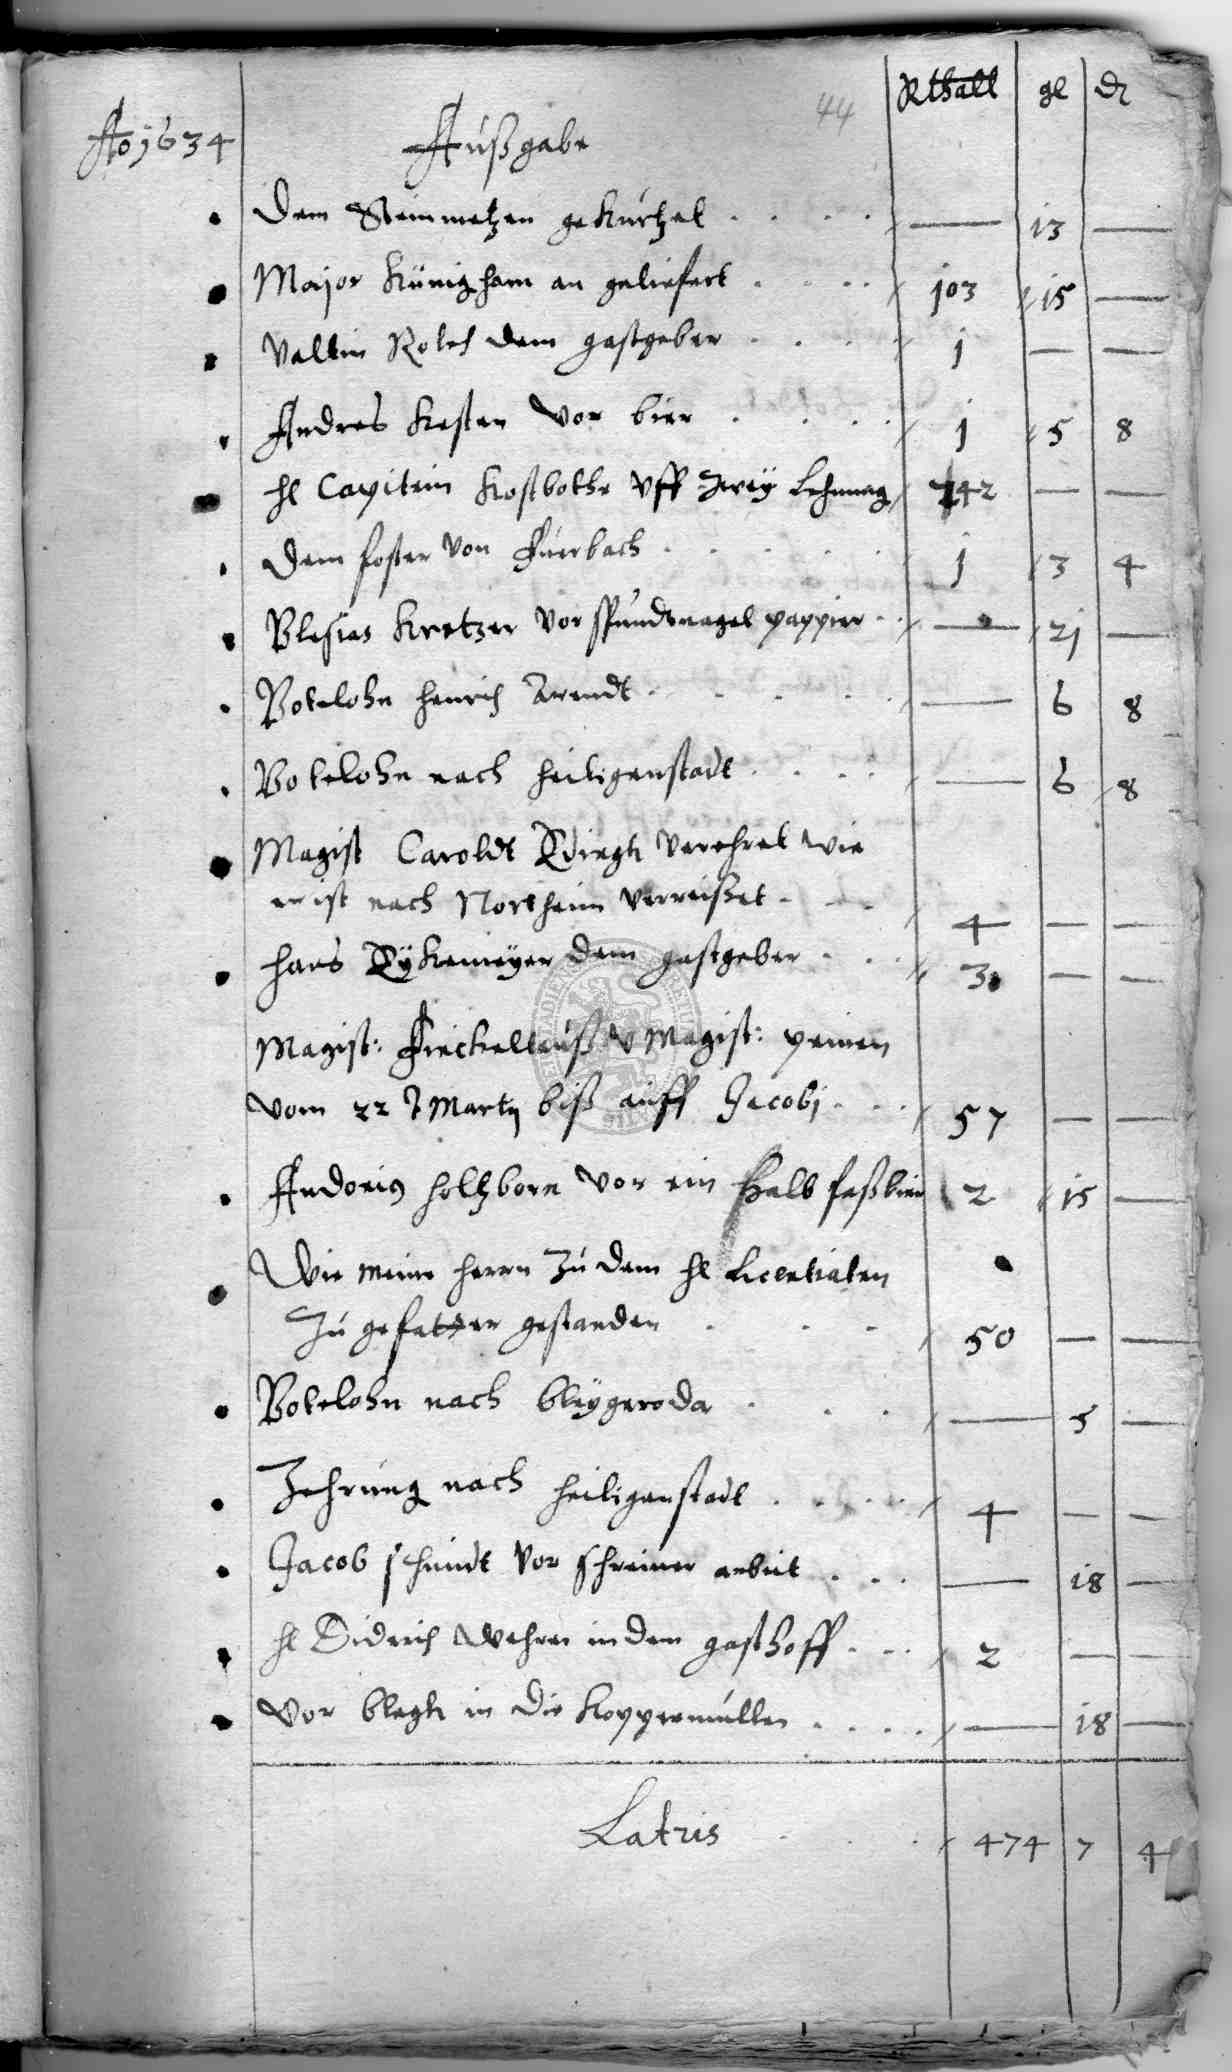 44 Rthall gl d
Ao 1634 Außgabe
Dem Steinmetzen gekurtzet — 13 —
Major Künigham an geliefert 103 15 —
Valtin Rolch dem gastgeber 1 — —
Andres Kesten vor bier 1 5 8
hl Capitein Kostbothe vff zweÿ Lehnung 242 — —
Dem foster von Fuerbach 1 3 4
Blesias Kretzer vor spundtnagel pappier — 21 —
Botelohn Henrich Arendt — 6 8
Botelohn nach Heiligenstadt — 6 8
Magist Caroldt verehret wie
er ist nach Northeim verreißet 4 — —
Hans Dÿkemeÿer dem gastgeber 3 — —
Magist: Finckelthuß v Magist:
vom 22 Martÿ biß auff Jacobj 57 — —
Andorius Holtzborn vor ein halb faßbier 2 15 —
Wie meine Herrn zu dem hl Licentiaten
zu gefatter gestanden 50 — —
Botelohn nach Bleÿgeroda — 5 —
Zehrung nach Heiligenstadt 4 — —
Jacob schmidt vor schreiner arbeit — 18 —
hl Diderich Wehren in dem gasthoff 2 — —
Vor blegh in die Koppermullen — 18 —
Latris 474 7 4